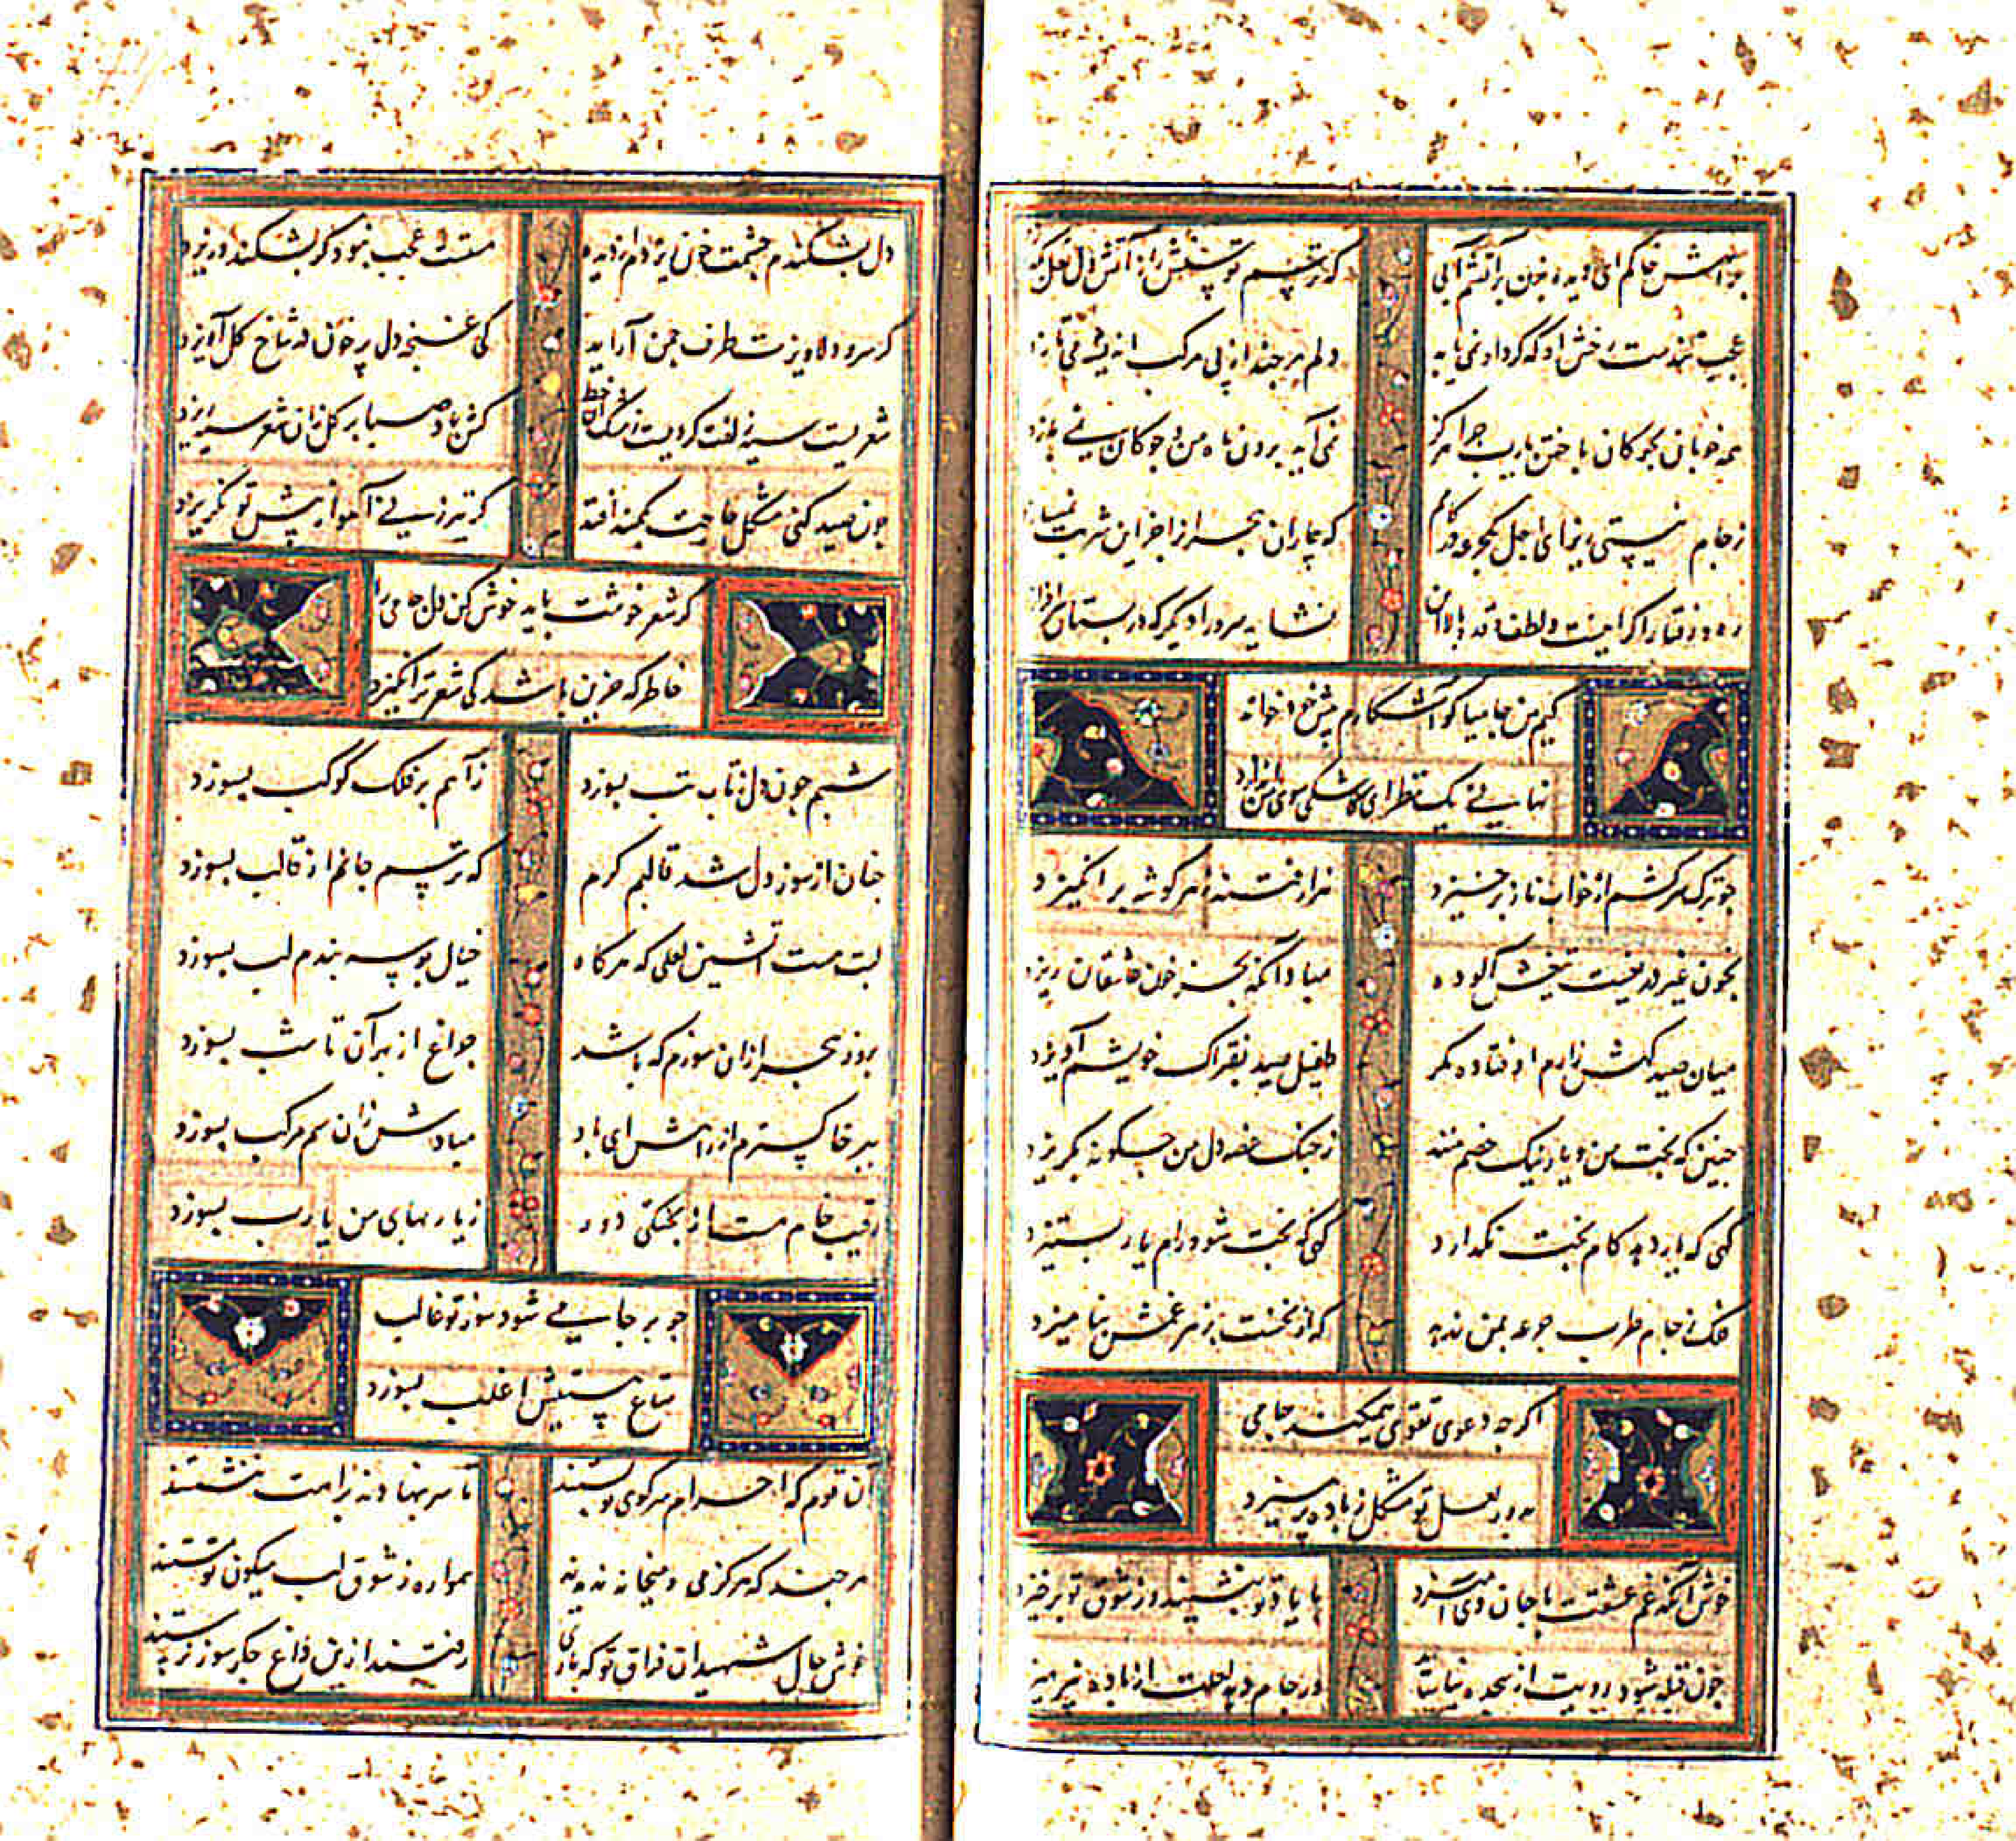 که ترسم توسنش را ز آتش دل نعل
عجب تندست رخش او که گردادنمی یابد
دلم هر چند از پی مرکب اندیشه می تازد
همه خوبان بچوکان باختن یارب چرا هرگز
نمی آید برون ماه من و چوکان نمی بازد
ز جام نیستی ریز ای اجل یکجرعه در کامم
که بیماران هجر از جز این شربت
ره و رفتار اگر اینست و لطف قد و بالا این
نشاید سرو را دیگر که در بستان
کیم من جامیا کو آشکارم پیش خود خواند
نهانی یک نظر ای کاشکی سوی من اندازد
چو ترک سرکشم از خواب ناز برخیزد
هزار فتنه ز هر گوشه برانگیزد
بخون غیر دریغست تیغش آلوده
مبادا آنکه بجز خون عاشقان ریزد
میان صید کهش زارم اوفتاده مگر
طفیل صید بفتراک خویشم آویزد
چنین که بخت من و یار نیک خصم منند
ز جنگ غصه دل من چگونه بگریزد
گهی که یار دهد کام بخت نگذارد
گهی که بخت شود رام یار بستیزد
فلک ز جام طرب جرعه بمن ندهد
که از نخست بزهر غمش نیامیزد
اگر چه دعوی تقوی همیکند جامی
بدور لعل تو مشکل ز باده پرهیزد
خوش آنکه غم عشقت با جان وی آمیزد
با یاد تو بنشیند وز شوق تو برخیزد
چون قبله شود رویت از سجده نیاساید
در جام دهد لعلت از باده نپرهیزد
دل بشکندم چشمت خون ریزدم از دیده
مستست و عجب نبود گر بشکند و ریزد
گر سرو دلاویزت طرف چمن آراید
کی غنچه دل پر خون در شاخ گل آویزد
شعریست سیه زلفت گرد بیت ز مشک آن خط
کش باد صبا بر گل زان شعر سیه بیزد
چون صید کنی مشکل جانیت بکمند افتد
گر تیر زنی آهو از پیش تو نگریزد
گر شعر خوشت باید خوش کن دل جامی را
خاطر که حزین باشد کی شعر تر انگیزد
شبم چون دل ز تاب تب بسوزد
ز آهم بر فلک کوکب بسوزد
چنان از سوز دل شد قالبم گرم
که ترسم جانم از قالب بسوزد
لبت هست آتشین لعلی که هر گاه
خیال بوسه بندم لب بسوزد
بروز هجر ازان سوزم که باشد
چراغ از بهر آن تا شب بسوزد
ببر خاکسترم از راهش ای باد
مبادا کش زان سم مرکب بسوزد
رقیب خام هست از پختگی دور
ز یاربهای من یارب بسوزد
چو بر جامی شود سوز تو غالب
متاع هستیش اغلب بسوزد
آن قوم که احرام سر کوی تو بستند
تا سر ننهادند براهت ننشستند
هر چند که هرگز می و میخانه ندیدند
همواره ز شوق لب میگون تو مستند
خوش حال شهیدان فراق تو که باری
رفتند ازین داغ جگر سوز برستند